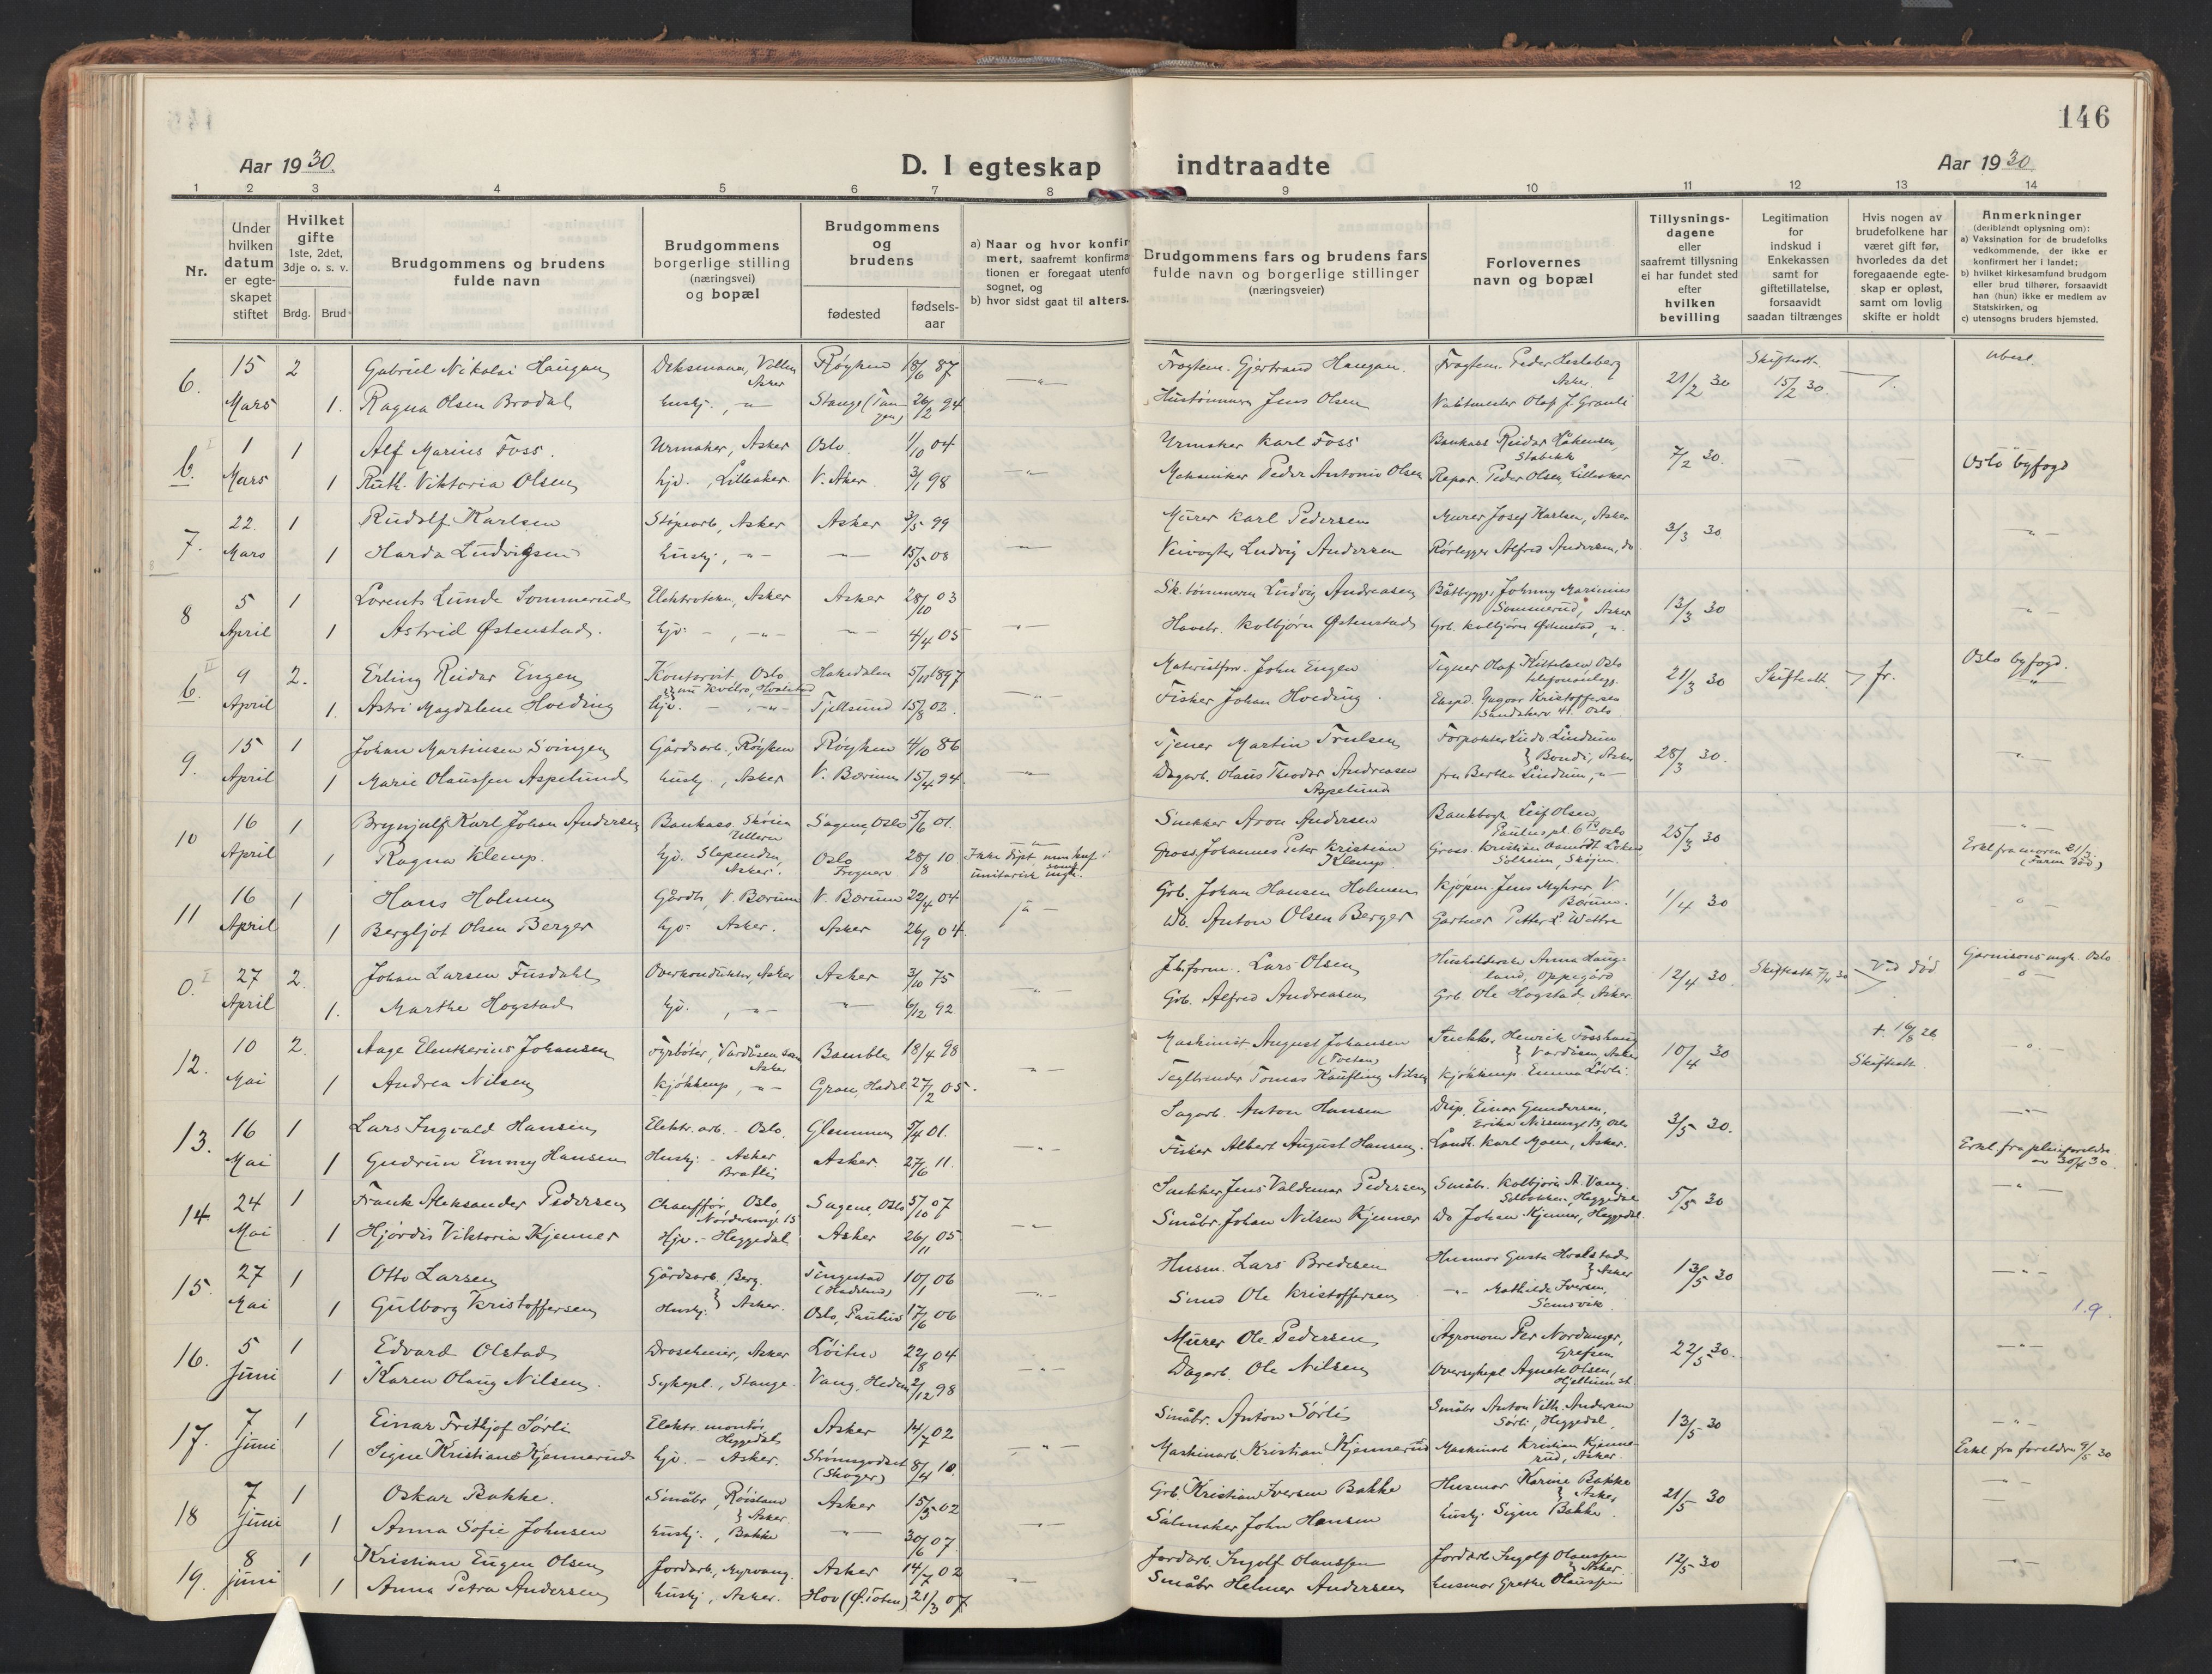 146
Aar 1930.
D. I egteskap indtraadte
Aar 1930
1 2 3 4 5 6 7 8 9 10 11 12 13 14
Nr.
Under hvilken datum er egteskapet stiftet
Hvilket gifte 1ste, 2det, 3dje o. s. v.
Brdg. Brud
Brudgommens og brudens fulde navn
Brudgommens borgerlige stilling (næringsvei) og bopæl
Brudgommens og brudens
fødested
fødsels-aar
a) Naar og hvor konfirmert, saafremt konfirmationen er foregaat utenfo sognet, og
b) hvor sidst gaat til alters.
Brudgommens fars og brudens fars fulde navn og borgerlige stillinger (næringsveier)
Forlovernes navn og bopæl
Tillysningsdagene eller saafremt tillysning ei har fundet sted efter hvilken bevilling
Legitimation for indskud i Enkekassen samt for giftetillatelse, forsaavidt saadan tiltrænges
Hvis nogen av brudefolkene har været gift før, hvorledes da det foregaaende egteskap er opløst, samt om lovlig skifte er holdt
Anmerkninger (deriblendt oplysning om):
a) Vaksination for de brudefolks vedkommende, der ikke er konfirmert her i landet;
b) hvilket kirkesamfund brudgom eller brud tilhører, forsaavidt han (hun) ikke er medlem av Statskirken, og
c) utensogns bruders hjemsted.
6. 15 2 Gabriel Nikolai Haugan Røyken 18/6 87 Fragtem. Gjertrand Haugan. Fragtem. Peder Hesleberg Asker. 21/2 30 Skifteatt. 15/2 30.
Mars 1. Ragna Olsen Brodal husbj. Stange (Tangen) 26/2 94 Jens Olsen Olaf J. Grauli
b. I 1 1 Alf Marius Foss. Urmaker, Asker Oslo. 1/10 04 Urmaker Karl Foss Reidar Håkensen, Stabekk 7/2 30. Oslo byfogd
Mars 1 Ruth Viktoria Olsen hjv., Lilleaker V. Aker. 3/1 98 Mekaniker Peder Antonio Olsen Repar. Peder Olsen, Lilleaker
7. 22. 1 Rudolf Karlsen Støpearb, Asker Asker 3/5 99 Murer Karl Pedersen Murer Josef Karlsen, Asker 3/3 30.
Mars 1 Harda Ludvigsen husbj, 15/5 08 Veivogter Ludvig Andersen Rørlegger Alfred Andersen, do
8 5 1 Lorents Lunde Sommerud Elektrotekn, Asker Asker 28/10 03 Ludvig Andreasen Båtbygg. Johnny Marinius Sommerud, Asker 13/3 30
April 1 Astrid Østenstad. hjv. 4/4 05 Havebr. Kolbjørn Østenstad Grb. Kolbjørn Østenstad
b. II 9 2. Erling Reidar Engen Kontorvit, Oslo Hakedalen 5/10 1897 Materialforv. John Engen Tegner Olaf Kittelsen Oslo telefonanlegg. 21/3 30 Skifteatt. fr. Oslo byfogd.
April 1. Astri Magdalene Hveding hjv. Tjellsund 15/8 02. Fisker Johan Hveding. Eksped. Yngvar Kristoffersen Oslo
9. 15 1 Johan Martinsen Svingen Gårdsarb, Røyken Røyken 4/10 86 Tjener Martin Trulsen Forpakter Lindrum } Bondi, Asker 28/3 30.
April 1 Marie Olaussen Aspelund husbj., Asker V. Bærum 15/4 94. Dagarb. Olaus Theodor Andreasen Aspelund fru Bertha Lindrum,
10 16 1 Brynjulf Karl Johan Andersen Bankass. Skøien Ullern Sagene, Oslo 5/6 01. Snekker Aron Andersen Bankbogh. Leif Olsen, Paulus pl. 6 Oslo 25/3 30
April 1 Ragna Klemp. hjv. Slependen, Asker. Oslo Frogner. 28/8 10 Ikke døpt men konf. i unitarisk mgh. Gross. Johannes Peter Kristian Klemp Gross. Kristian Solheim, Skøien. Erkl fra moren 21/3 (Farm død)
11 16 1 Hans Holmen Gårdbr, V. Bærum V. Bærum 22/4 04 Grb. Johan Hansen Holmen Kjøpm. Jens Myhrer V. Bærum. 1/4 30
April 1 Bergljot Olsen Berger hjv. Asker. Asker 26/9 04. Do. Anton Olsen Berger Gartner Petter L. Wettre
0. I 27 2. Johan Larsen Fusdahl Overkonduktør, Asker Asker 3/10 75 Lars Olsen Husholderske Anna Haugland, Oppegård 12/4 30. Skifteatt Ved død Garnisonsmgh. Oslo
April 1. Marthe Hogstad hjv. 6/12 92 Grb. Alfred Andreasen Grb Ole Hogstad Asker.
12. 10 2. Aage Eleutherius Johansen Fyrbøter, Vardåsen san Asker Bamble 18/4 98 Maskinist August Johansen Snekker Henrik Fosshaug } Vardåsen, Asker 10/4 30 + 16/8 26 Skifteatt
Mai 1 Andrea Nilsen Kjøkkenp, Gran, Hadel. 27/2 05. Teglbrender Tomas Nilsen Kjøkkenp. Emma Løvli.
13. 16 1 Lars Ingvald Hansen Elektr. arb. - Oslo. Glemmen 5/4 01. Sagarb. Anton Hansen Disp. Einar Gundersen, Erika Nissensgt 13, Oslo 3/5 30.
Mai 1 Gudrun Emmy Hansen Husbj. - Asker Asker. 27/6 11. Fisker Albert August Hansen. Karl Moen, Asker. Erkl. fra pleieforeldre av 30/4 30.
14. 24 1 Frank Aleksander Pedersen Chauffør, Oslo, Sagene, Oslo 5/10 07 Snekker Jens Valdemar Pedersen Småbr. Kolbjørn A. Vang. Solbakken, Heggedal 5/5 30
Mai 1 Hjørdis Viktoria Kjenner Hjv. - Heggedal Asker 26/11 05 Småbr. Johan Nilsen Kjenner Do Johan Kjenner, Heggedal.
15. 27 1 Otto Larsen Gårdsarb. Berg. Tingestad 10/1 06 Husm. Lars Bredesen Husmor Gusta Hvalstad } Asker 13/5 30
Mai 1 Gulborg Kristoffersen Husbj. } Asker. Oslo, Paulus 17/6 06 Smed Ole Kristoffersen Mathilde Iversen, Semsvik. 1.9.
16. 5 1 Edvard Olstad Droscheeier, Asker Løiten 22/8 04 Murer Ole Pedersen Agronom Per Nordanger, Grefsen 22/5 30.
Juni 1 Karen Olaug Nilsen. Sykepl., Stange. Vang, Hedm 2/12 98 Dagarb. Ole Nilsen Oversykepl Agnete Olsen, Hjellum st.
17. 7 1 Einar Fritjof Sørli Elektr. montør, Heggedal Asker 14/7 02 Småbr. Anton Sørli Småbr Anton Vilh. Andersen Sørli, Heggedal, 13/5 30
Juni 1 Signe Kristiane Kjennerud hjv. - Asker. Strømsgodset (Skoger) 8/4 10. Maskinarb. Kristian Kjennerud Maskinarb Kristian Kjennerud, Asker. Erkl fra foreldre 9/5 30
18 7 1 Oskar Bakke. Småbr, Røisland } Asker. Asker 15/3 02 Grb. Kristian Iversen Bakke Husmor Karine Bakke } Asker 21/5 30
Juni 1 Anna Sofie Johnsen husbj., Bakke 30/6 07. Salmaker John Hansen husbj. Signe Bakke.
19. 8 1 Kristian Eugen Olsen Jordarb, Myrvang. Asker 14/7 02 Jordarb. Ingolf Olaussen Jordarb Ingolf Olaussen } Asker. 12/5 30
Juni 1 Anna Petra Andersen husbj, Asker. Hov (Ø. Toten) 21/3 07 Småbr Helmer Andersen husmor Grethe Olaussen